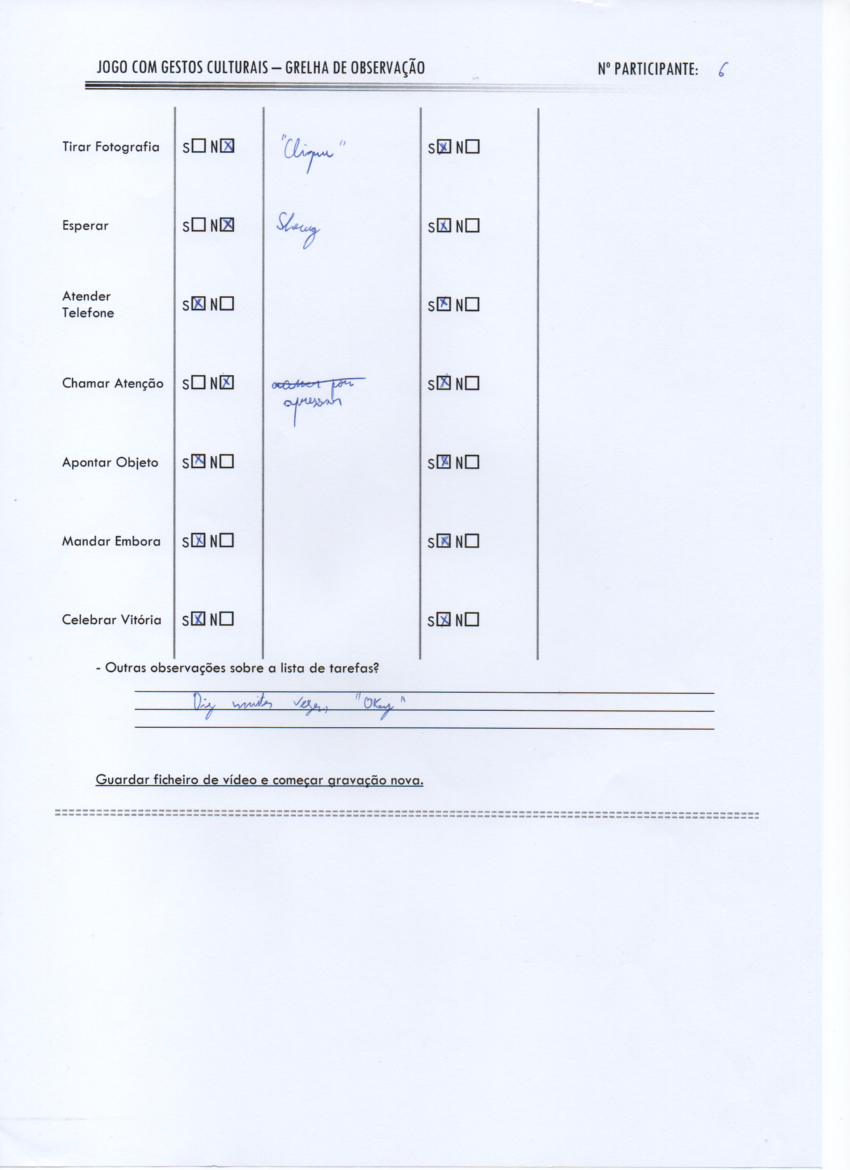 JOGO COM GESTOS CULTURAIS – GRELHA DE OBSERVAÇÃO Nº PARTICIPANTE: 6
Tirar Fotografia S☐ N☒ "Clique" S☒ N☐
Esperar S☐ N☒ Shrug S☒ N☐
Atender
Telefone S☒ N☐ S☒ N☐
Chamar Atenção S☐ N☒ por S☒ N☐
apressar
Apontar Objeto S☒ N☐ S☒ N☐
Mandar Embora S☒ N☐ S☒ N☐
Celebrar Vitória S☒ N☐ S☒ N☐
- Outras observações sobre a lista de tarefas?
Diz muitas vezes, "Okay"
Guardar ficheiro de vídeo e começar gravação nova.